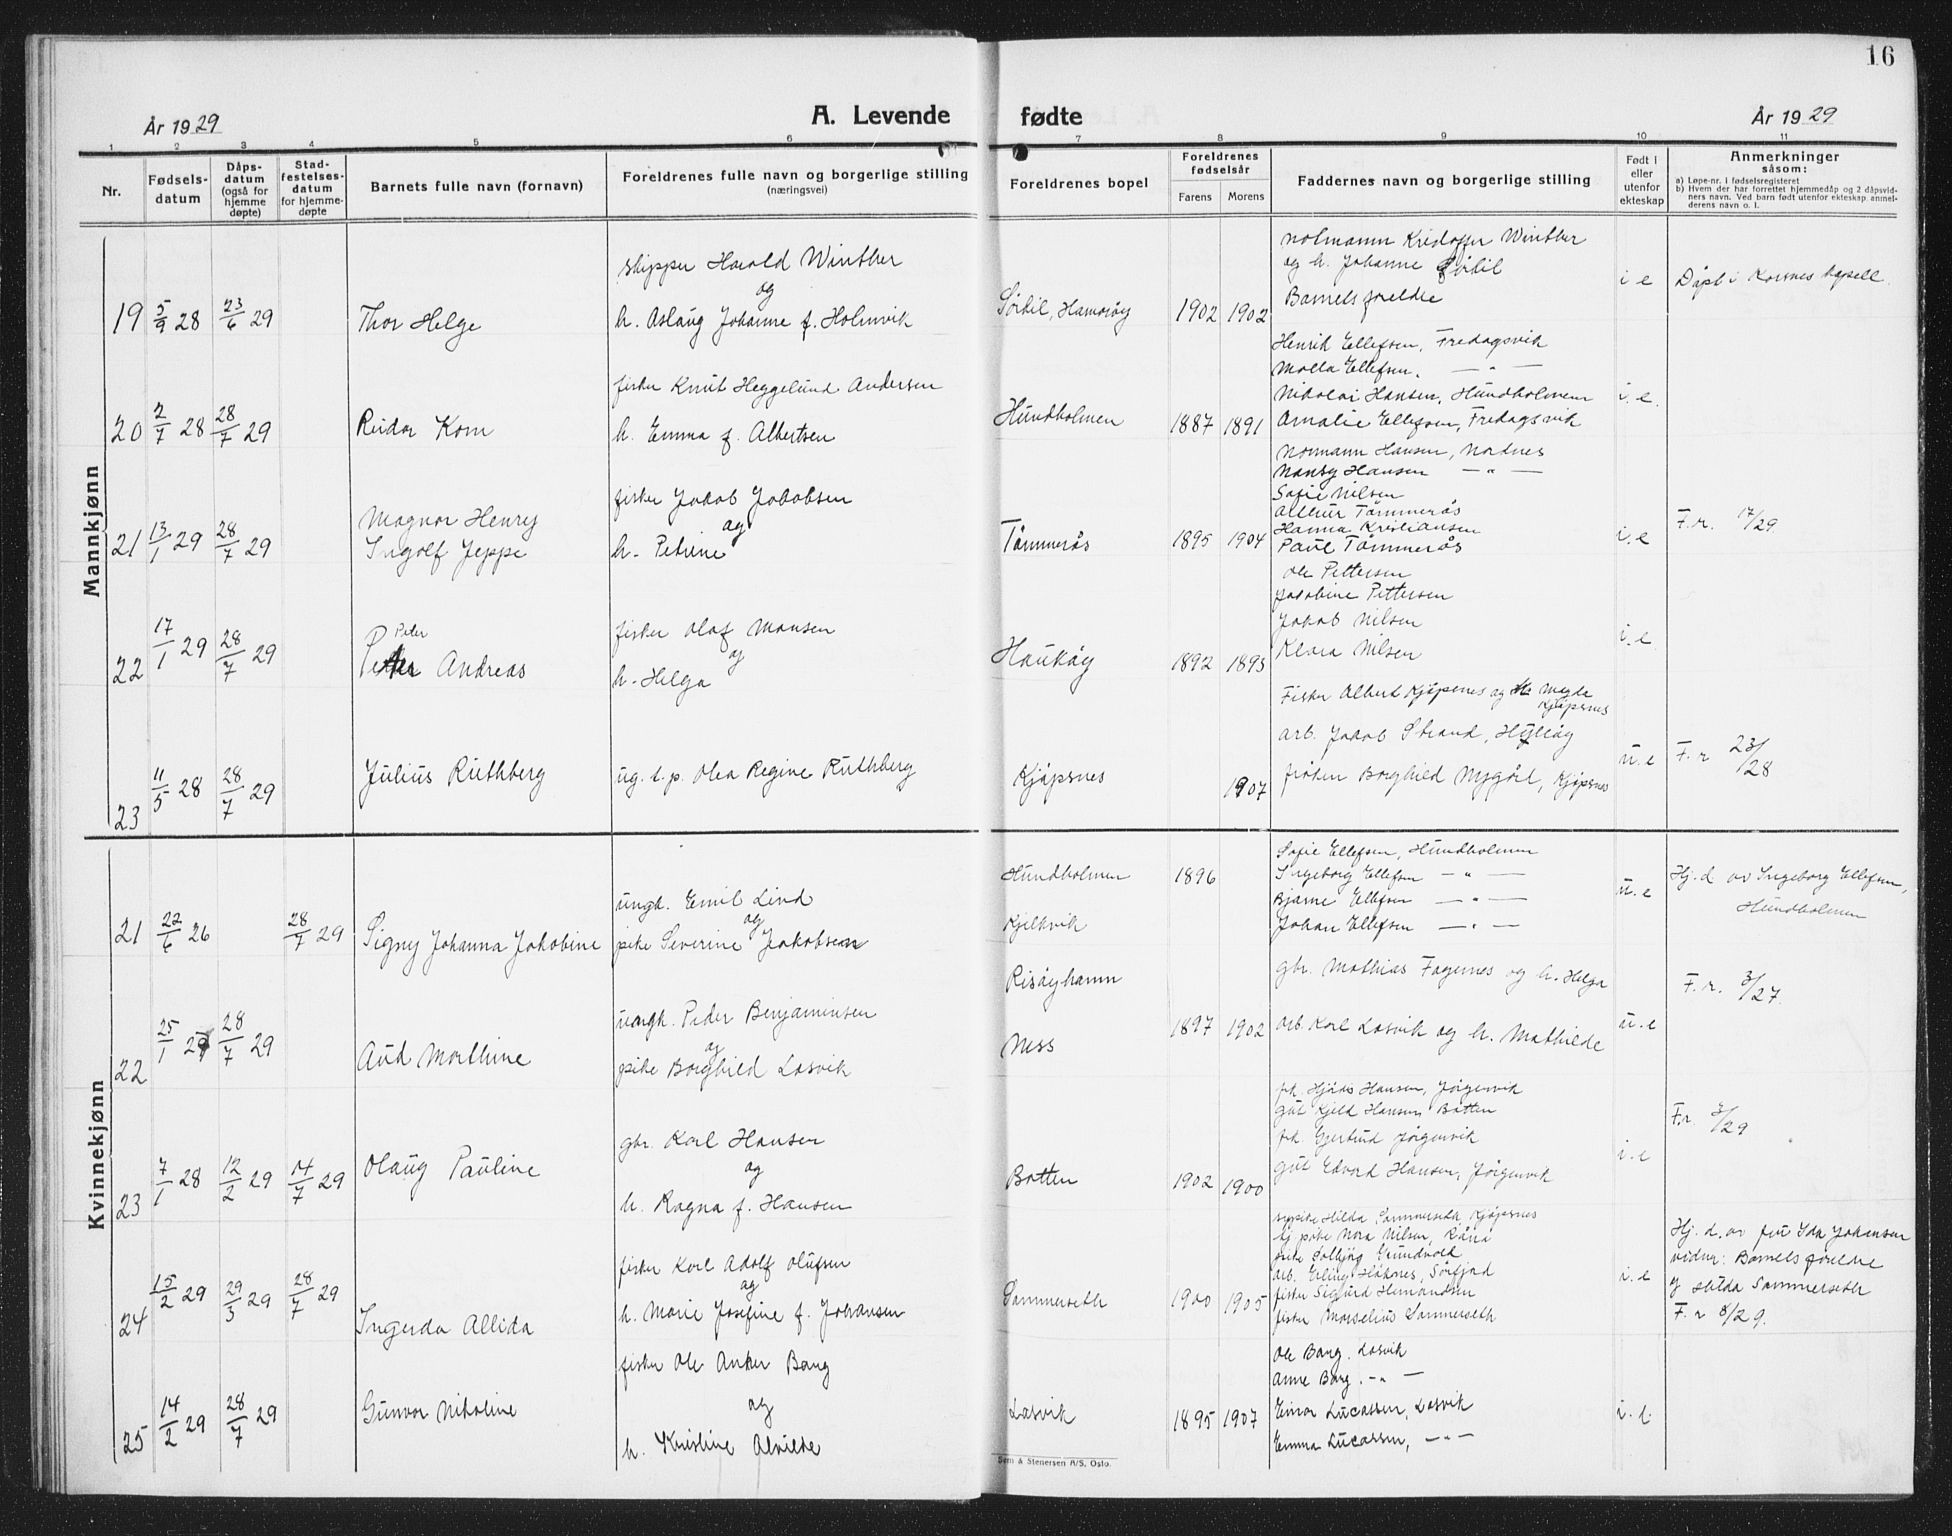 16
År 1929
A. Levende fødte
År 1929
1 2 3 4 5 6 7 8 9 10 11
Nr.
Fødsels-
datum
Dåps-
datum
(også for
hjemme
døpte)
Stad-
festelses-
datum
for hjemme-
døpte
Barnets fulle navn (fornavn)
Foreldrenes fulle navn og borgerlige stilling
(næringsvei)
Foreldrenes bopel
Foreldrenes
fødselsår
Farens Morens
Faddernes navn og borgerlige stilling
Født i
eller
utenfor
ekteskap
Anmerkninger
såsom:
a) Løpe-nr. i fødselsregisteret
b) Hvem der har forrettet hjemmedåp og 2 dåpsvid-
ners navn. Ved barn født utenfor ekteskap anmel-
derens navn o. l.
Mannkjønn
19 5/9 28 23/6 29
Thor Helge
skipper Harald Winther
og
h. Aslaug Johanne f. Holmvik
Hamarøy
1902 1902
Winther
og h. Johanne
Barnets foreldre
i e
Døpt i Korsnes kapell
20 2/7 28 28/7 29
Reidar Korn
fisker Knut Heggelund Andersen
h. Emma f. Albertsen
Hundholmen
1887 1891
Henrik Ellefsen, Fredagsvik
Ellefsen, — " —
Nikolai Hansen, Hundholmen
Amalie Ellefsen, Fredagsvik
Normann Hansen, Nordnes
Nansy Hansen — " —
i. e.
21 13/1 29 28/7 29
Magnor Henry
Ingolf Jeppe
fisker Jakob Jakobsen
og
h. Petrine
Tømmerås
1895 1904
Sofie Nilsen
Arthur Tømmerås
Hanna Kristiansen
Paul Tømmerås
Ole Pettersen
Jakobine Pettersen
i. e
F. r. 17/29
22 17/1 29 28/7 29
Peter
Andreas
fisker Olaf Monsen
og
h. Helga
Haukøy
1892 1893
Jakob Nilsen
Klara Nilsen
i. e
23 11/5 28 28/7 29
Julius Ruthberg
ug. t. p. Olea Regine Ruthberg
Kjøpsnes
1907
Fisker Albert Kjøpsnes og
Kjøpsnes
arb. Jakob Strand,
frøken Borghild Nygård, Kjøpsnes
u. e
F. r 23/28
Kvinnekjønn
21 22/6 26 28/7 29
Signy Johanna Jakobine
ungk. Emil Lind
og
pike Severine Jakobsen
Hundholmen
Kjelkvik
1896
Sofie Ellefsen, Hundholmen
Ingeborg Ellefsen — " —
Bjarne Ellefsen — " —
Johan Ellefsen — " —
u. e
Hj. d av Ingeborg Ellefsen,
Hundholmen
22 25/1 28/7 29
Aud Marthine
ungk. Peder Benjaminsen
og
pike Borghild Losvik
Risøyhamn
Ness
1897 1902
gbr. Mathias Fagernes og h. Helga
arb. Karl Losvik og h. Mathilde
u. e
F. r. 3/27.
23 7/1 28 12/2 29 14/7 29
Olaug Pauline
gbr. Karl Hansen
og
h. Ragna f. Hansen
Botten
1902 1900
frk. Hansen, Jørgenvik
gut Kjeld Hansen Botten
frk. Gjertrud Jørgenvik
gut Edvard Hansen, Jørgenvik
i. e
F.r. /29
24 15/2 29 29/3 29 28/7 29
Ingerda Allida
fisker Karl Adolf Olufsen
og
h. Marie Josefine f. Johansen
Sommerseth
1900 1905
Hilda Sommerseth Kjøpsnes
pike Nora Nilsen,
pike Solbjørg Grundvold
arb. Erling Håknes, Sørfjord
fisker Sigurd
fisker Marselius Sommerseth
i. e
Hj. d. av fru Ida Johansen
vidner: Barnets foreldre
og Hilda Sommerseth
F. r 8/29.
25 14/2 29 28/7 29
Gunvor Nikoline
fisker Ole Anker Bang
og
h. Kristine Alvilde
Losvik
1895 1907
Ole Bang. Losvik
Anne Bang. - " —
Einar Lucassen, Losvik
Emma Lucassen, — " —
i. e.
Sem & Stenersen A/S, Oslo.